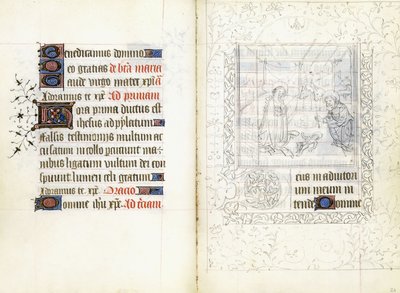 Benedicamus domino
Deo gratias de bta maria
Gaude virgo mater xpi a
Adoramus te xpe Ad primam
Hora prima ductus est
ihesus ad pylatum
Falsis testimoniis multum ac
cusatum in collo percutiunt ma
nibus ligatum vultum dei con
spuunt lumen celi gratum
Adoramus te xpe Oracio
Domine ihu xpe Ad terciam
Deus in adiutori
um meum in
tende Domine